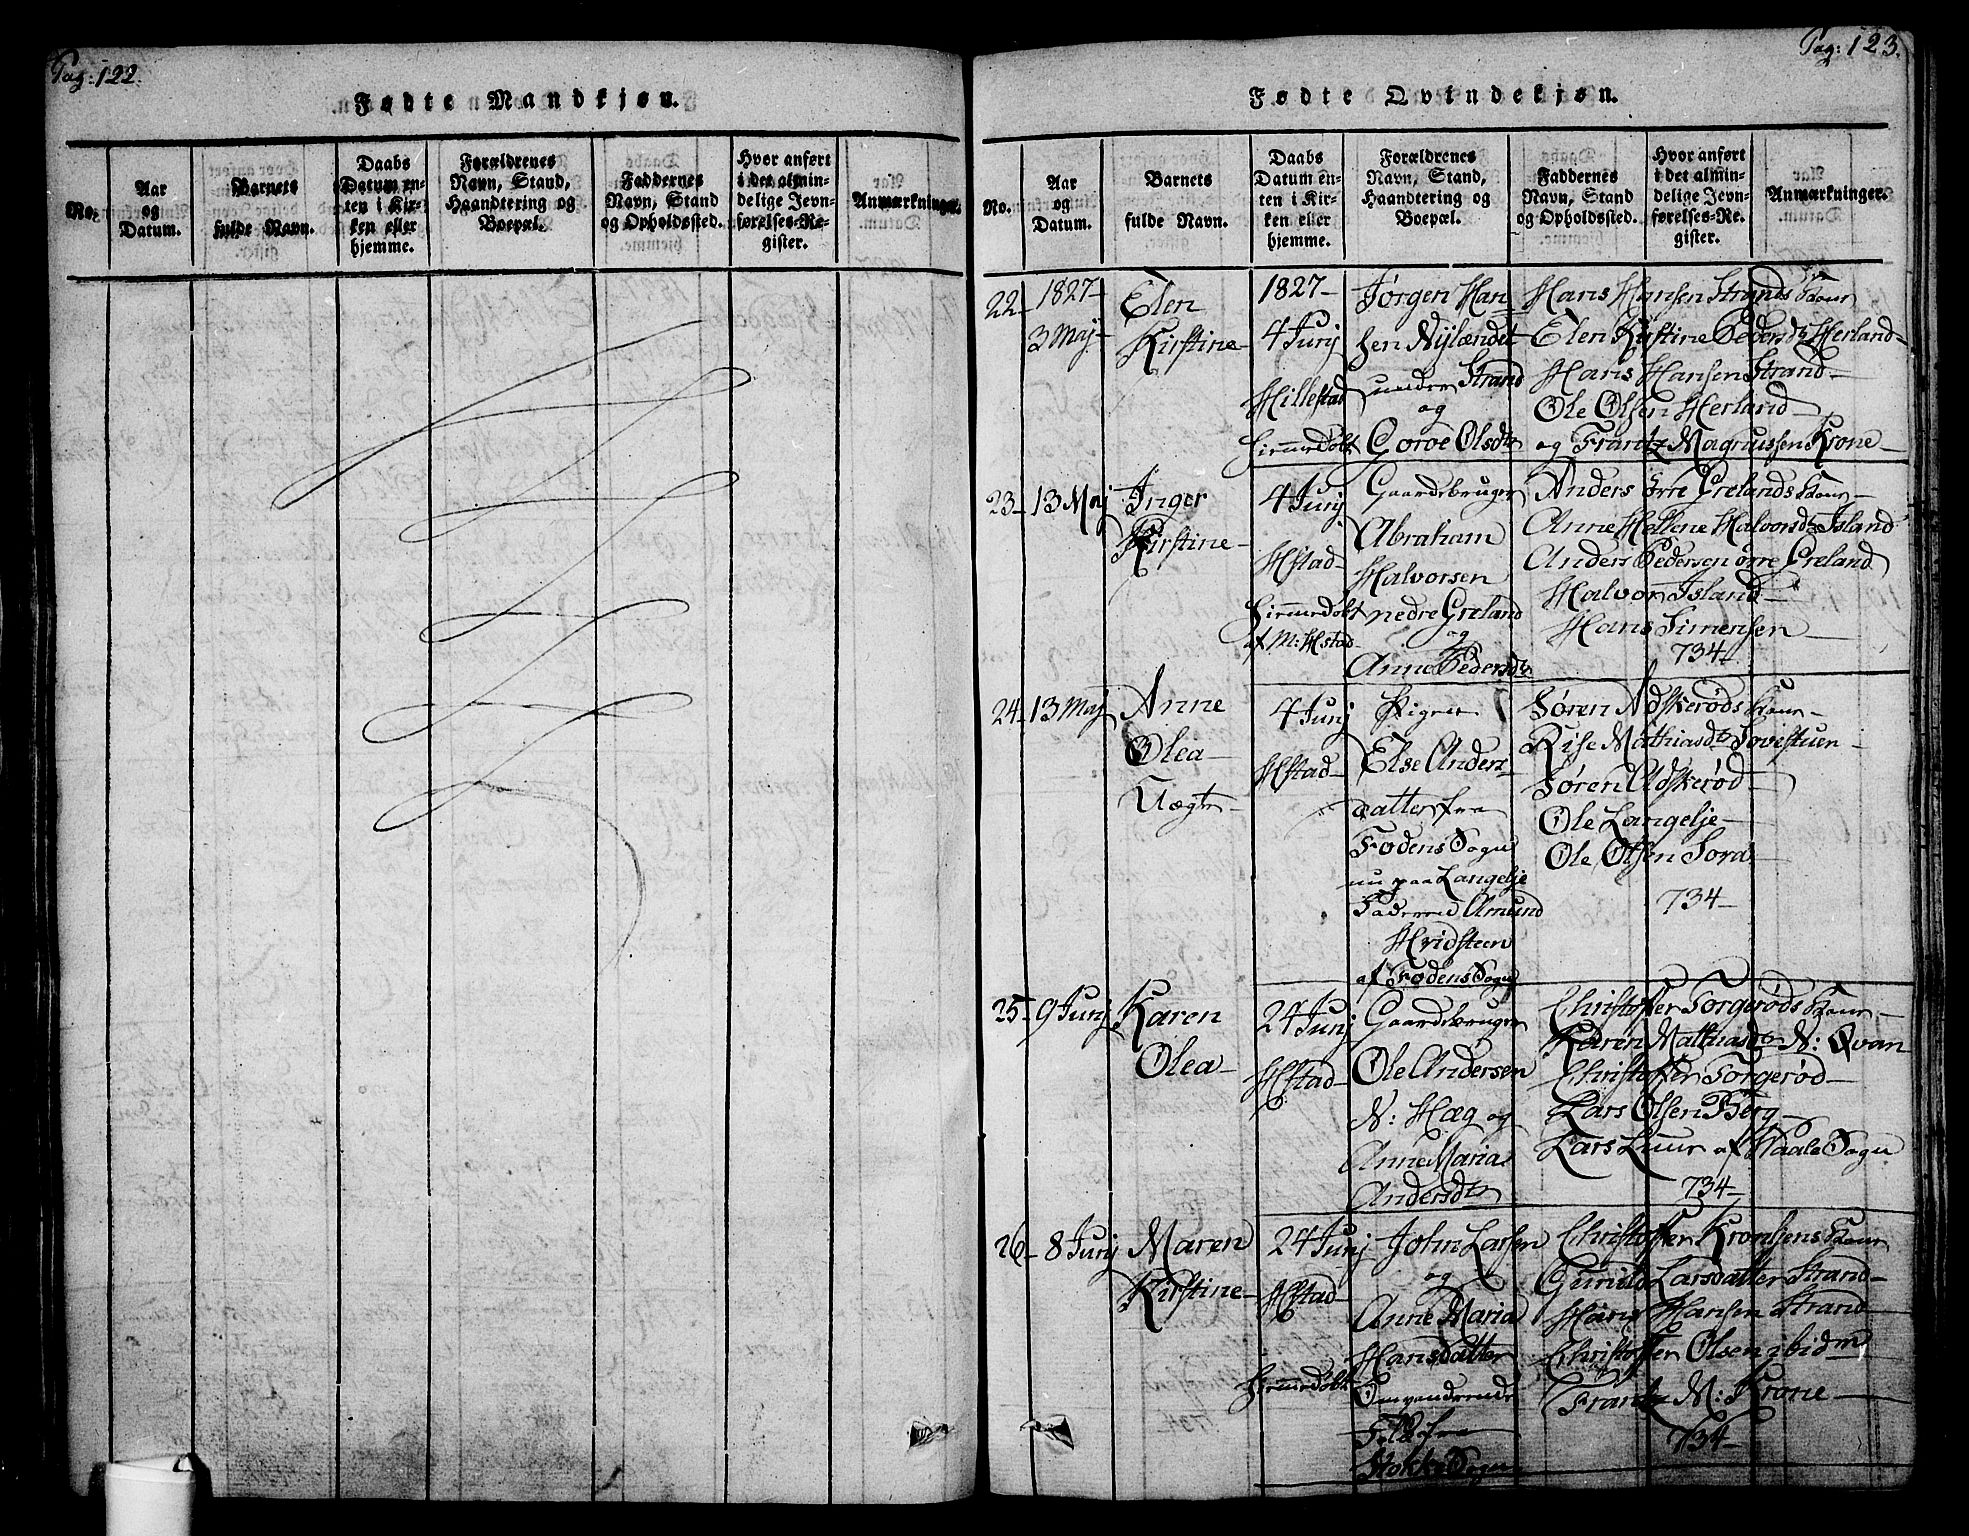 Pag: 122.
Fødte Mandkjøn.
No.
Aar
og
Datum.
Barnets
fulde Navn.
Daabs
Datum en-
ten i Kir-
ken eller
hjemme.
Forældrenes
Navn, Stand,
Haandtering og
Boepæl.
Faddernes
Navn, Stand
og Opholdssted.
Hvor anført
i det almin-
delige Jevn-
førelses-Re-
gister.
Anmærkninger.
Pag: 123.
Fødte Qvindekjøn.
No.
Aar
og
Datum.
Barnets
fulde Navn.
Daabs
Datum en-
ten i Kir-
ken eller
hjemme.
Forældrenes
Navn, Stand,
Haandtering og
Boepæl.
Faddernes
Navn, Stand
og Opholdssted.
Hvor anført
i det almin-
delige Jevn-
førelses-Re-
gister.
Anmærkninger.
22-
1827-
3 Maj-
Elen
Kirstine-
1827-
4 Junj
Hillestad
Hiemmedøbt
Jørgen Han-
sen Nylændet
under Strand
og
Goroe Olsdtr
Hans Hansen Strands Kone
Elen Kirstine Pedersdtr Herland-
Hans Hansen Strand-
Ole Olsen Herland-
og Frantz Magnussen Krone-
23-
13 Maj
Inger
Kirstine-
4 Junj
Hstad-
Hiemmedøbt
af M: Hstad
Gaardsbruger
Abraham
Halvorsen
nedre Greland
og
Anne Pedersdtr
Anders øvre Grelands Kone-
Anne Hellene Halvorsdtr Island
Anders Pedersen øvre Greland
Halvor Island-
Hans Simensen-
734-
24-
13 Maj
Anne
Olea-
Uægte-
4 Junj
Hstad-
Pigen
Else Anders-
datter fra
Fodens Sogn
nu paa Langelje
Faderen Amund
Hvidsteen
af Fodens Sogn
Søren Adskerøds Kone-
Rise Mathiasdtr Tovestuen-
Søren Adskerød-
Ole Langelje-
Ole Olsen
734-
25-
9 Junj
Karen
Olea-
24 Junj
Hstad-
Gaardsbruger
Ole Andersen
N: Hæg og
Anne Maria
Andersdtr
Christoffer Torgerøds Kone-
Karen Mathiasdtr N: Qvan
Christoffer Torgerød-
Lars Olsen Berg-
Lars Luur af Vaale Sogn
734-
26-
8 Junj
Maren
Kirstine-
24 Junj
Hstad-
Hiemmedøbt
John Larsen
og
Anne Maria
Hansdatter
Omvandrende
Folk fra
Stokke Sogn
Christoffer Kronsens Kone
Gunild Larsdatter Strand-
Hans Hansen Strand
Christoffer Olsen ibidm
Frantz M: Krone-
734-